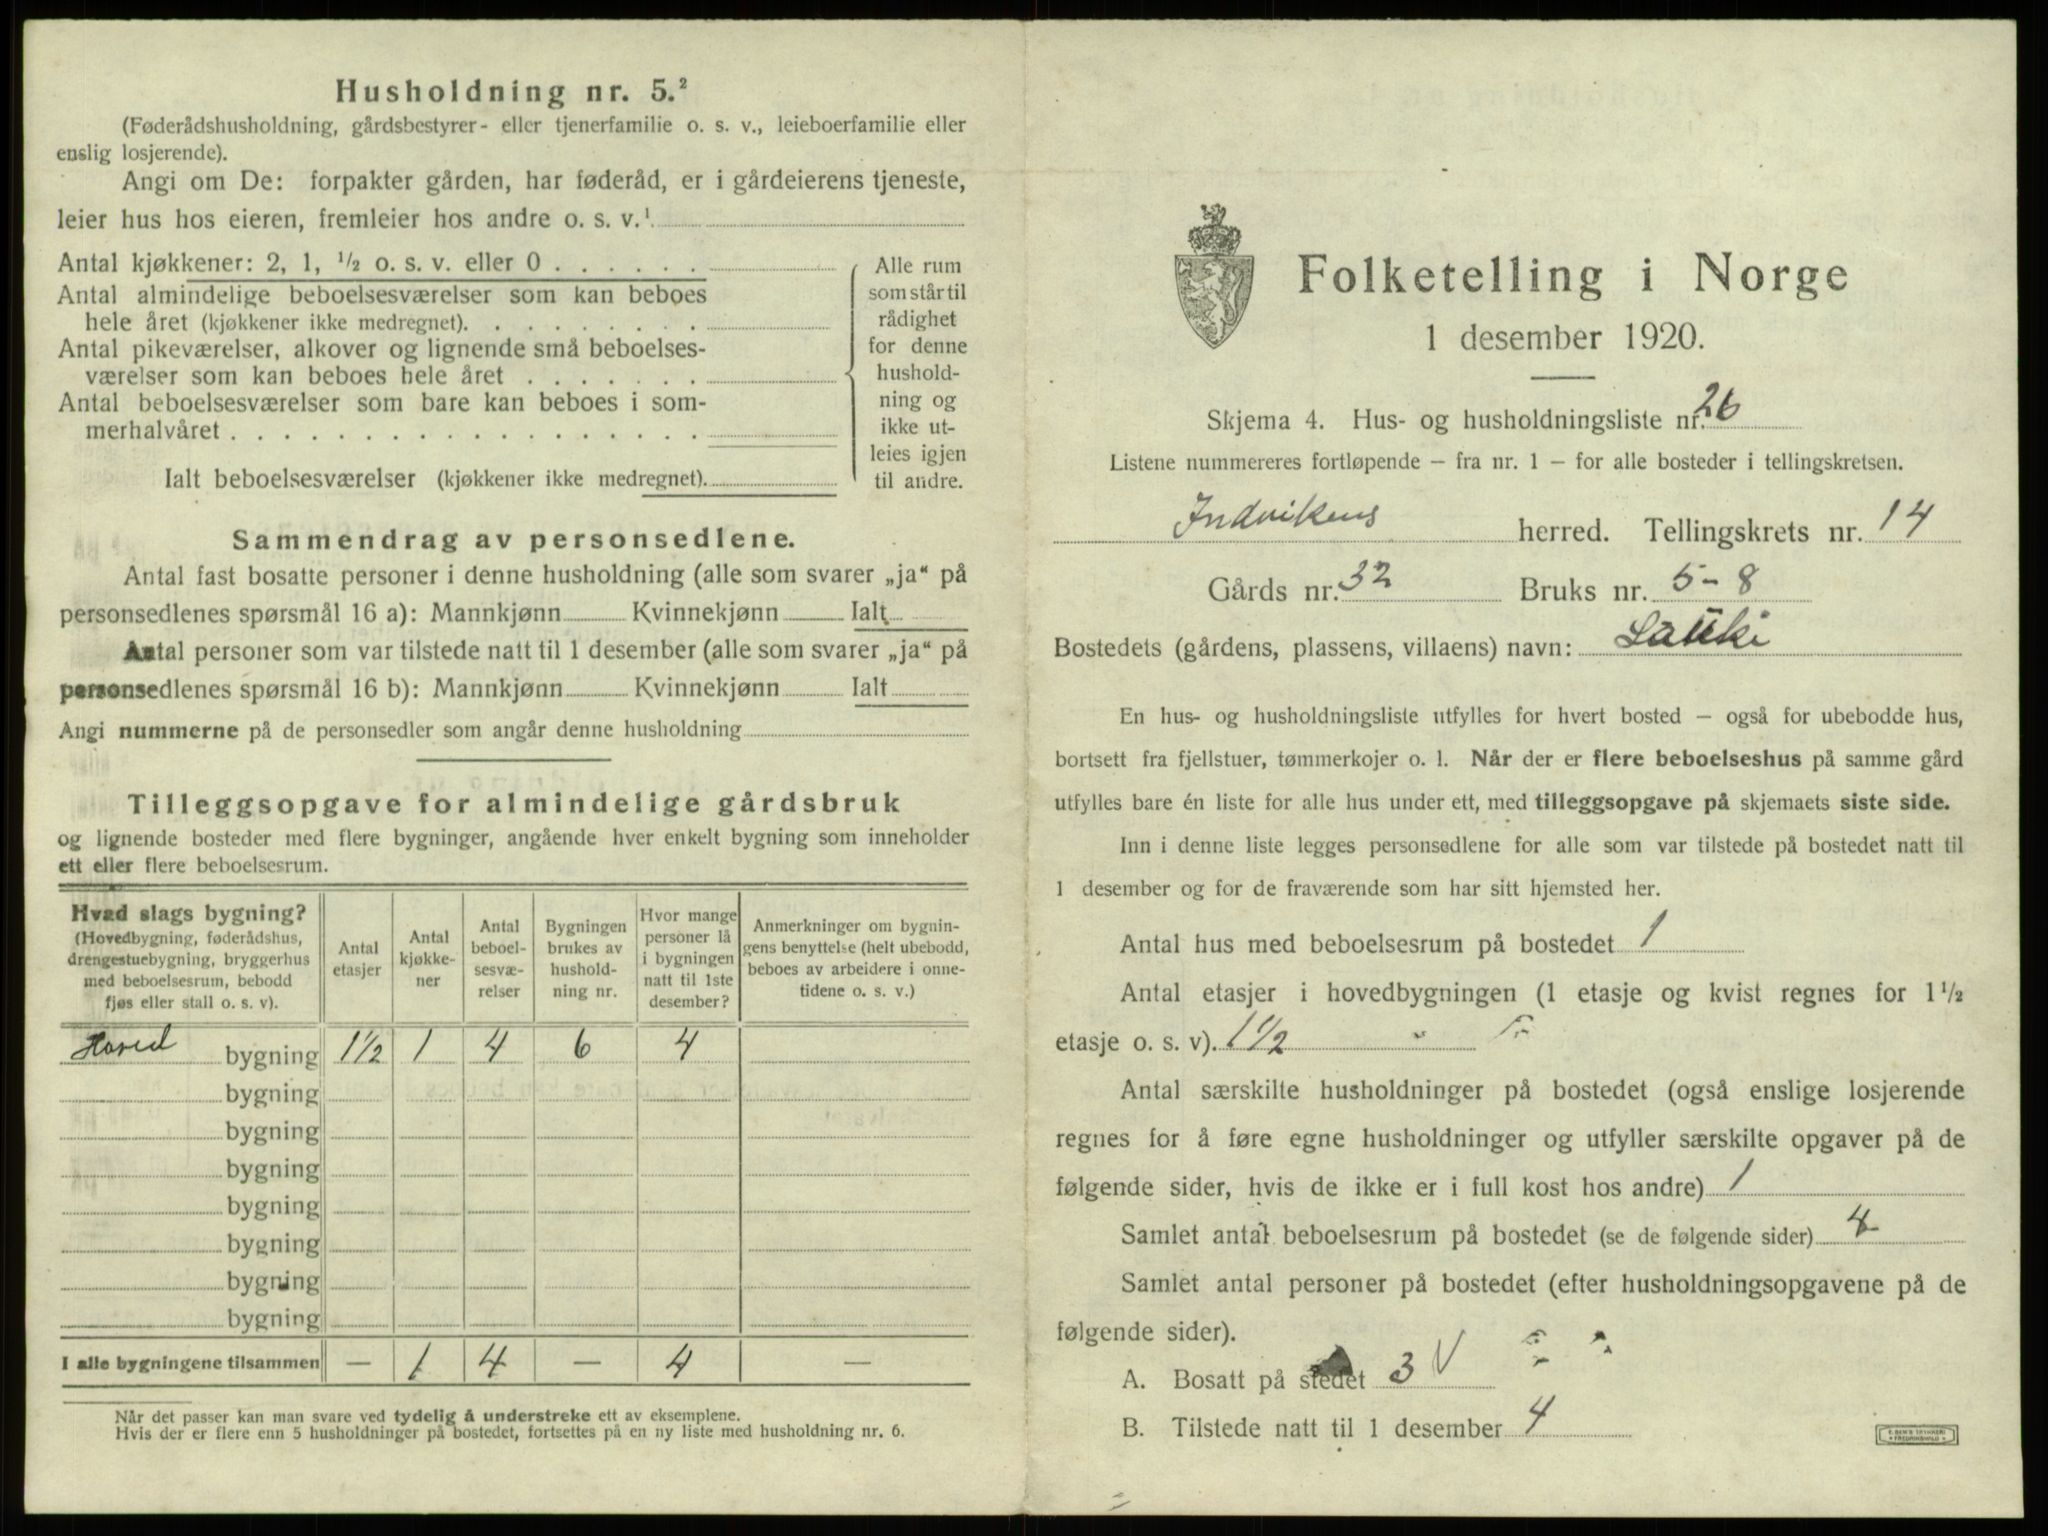 Husholdning nr. 5.²
(Føderådshusholdning, gårdsbestyrer- eller tjenerfamilie o. s. v., leieboerfamilie eller
enslig losjerende).
Angi om De: forpakter gården, har føderåd, er i gårdeierens tjeneste,
leier hus hos eieren, fremleier hos andre o. s. v.¹
Antal kjøkkener: 2, 1, ½ o. s. v. eller 0 . . . . . .
Antal almindelige beboelsesværelser som kan beboes
hele året (kjøkkener ikke medregnet). . . . . . . . .
Antal pikeværelser, alkover og lignende små beboelses-
værelser som kan beboes hele året . . . . . . .
Antal beboelsesværelser som bare kan beboes i som-
merhalvåret . . . . . . . . . . . . . . . . . .
Ialt beboelsesværelser (kjøkkener ikke medregnet).
Alle rum
som står til
rådighet
for denne
hushold-
ning og
ikke ut-
leies igjen
til andre.
Sammendrag av personsedlene.
Antal fast bosatte personer i denne husholdning (alle som svarer „ja“ på
personsedlenes spørsmål 16 a): Mannkjønn Kvinnekjønn Ialt
Antal personer som var tilstede natt til 1 desember (alle som svarer „ja“ på
personsedlenes spørsmål 16 b): Mannkjønn Kvinnekjønn Ialt
Angi nummerne på de personsedler som angår denne husholdning
Tilleggsopgave for almindelige gårdsbruk
og lignende bosteder med flere bygninger, angående hver enkelt bygning som inneholder
ett eller flere beboelsesrum.
Hvad slags bygning?
(Hovedbygning, føderådshus,
drengestuebygning, bryggerhus
med beboelsesrum, bebodd
fjøs eller stall o. s. v).
Antal
etasjer
Antal
kjøkke-
ner
Antal
beboel-
sesvæ-
relser
Bygningen
brukes av
hushold-
ning nr.
Hvor mange
personer lå
i bygningen
natt til 1ste
desember?
Anmerkninger om bygnin-
gens benyttelse (helt ubebodd,
beboes av arbeidere i onne-
tidene o. s. v.)
Hoved bygning 1½ 1 4 6 4
bygning
bygning
bygning
bygning
bygning
bygning
bygning
I alle bygningene tilsammen — 1 4 — 4 —
Når det passer kan man svare ved tydelig å understreke ett av eksemplene.
Hvis der er flere enn 5 husholdninger på bostedet, fortsettes på en ny liste med husholdning nr. 6.
Folketelling i Norge
1 desember 1920.
Skjema 4. Hus- og husholdningsliste nr. 26
Listene nummereres fortløpende – fra nr. 1 – for alle bosteder i tellingskretsen.
Indvikens herred. Tellingskrets nr. 14
Gårds nr. 32 Bruks nr. 5-8
Bostedets (gårdens, plassens, villaens) navn: Lauki
En hus- og husholdningsliste utfylles for hvert bosted – også for ubebodde hus,
bortsett fra fjellstuer, tømmerkojer o. l. Når der er flere beboelseshus på samme gård
utfylles bare én liste for alle hus under ett, med tilleggsopgave på skjemaets siste side.
Inn i denne liste legges personsedlene for alle som var tilstede på bostedet natt til
1 desember og for de fraværende som har sitt hjemsted her.
Antal hus med beboelsesrum på bostedet 1
Antal etasjer i hovedbygningen (1 etasje og kvist regnes for 1½
etasje o. s. v). 1½
Antal særskilte husholdninger på bostedet (også enslige losjerende
regnes for å føre egne husholdninger og utfyller særskilte opgaver på de
følgende sider, hvis de ikke er i full kost hos andre) 1
Samlet antal beboelsesrum på bostedet (se de følgende sider) 4
Samlet antal personer på bostedet (efter husholdningsopgavene på de
følgende sider).
A. Bosatt på stedet 3 V
B. Tilstede natt til 1 desember 4